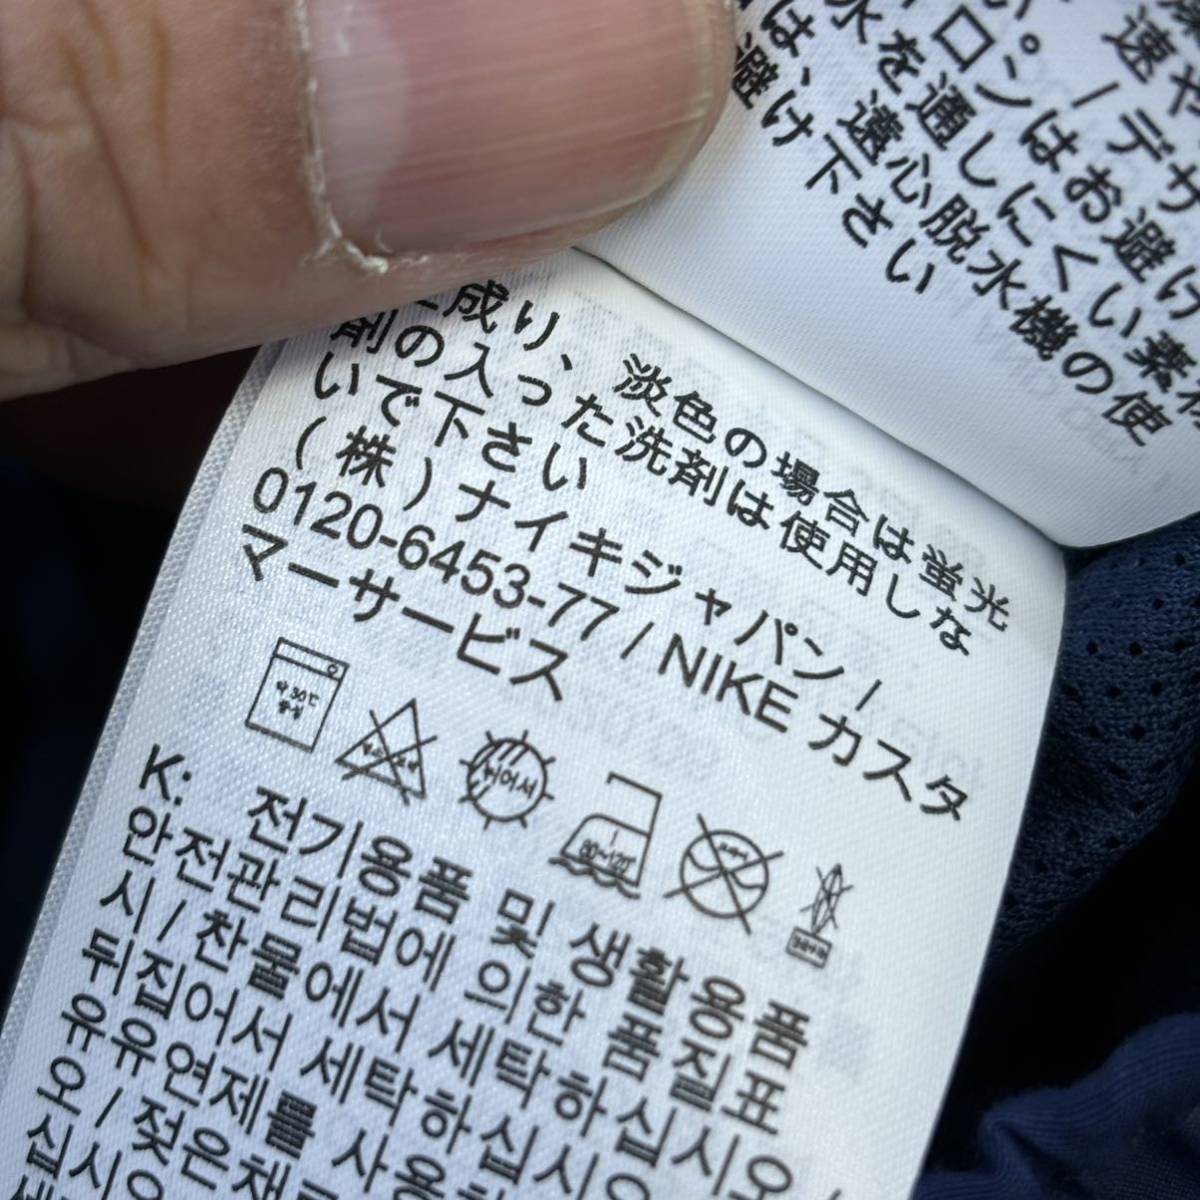 速や
い。 / デサ
イロンはお避け
水を通しにくい素材
は、遠心脱水機の使
避け下さい
成り、淡色の場合は蛍光
剤の入った洗剤は使用しな
いで下さい
(株)ナイキジャパン /
0120-6453-77 / NIKE カスタ
マーサービス
약 30℃
중성
80~120℃
K: 전기용품 및 생활용품
안전관리법에 의한 품질표
시 / 찬물에서 세탁하십시오
뒤집어서 세탁하십시오
유유연제를 사용
오 / 젖은채로
십시오